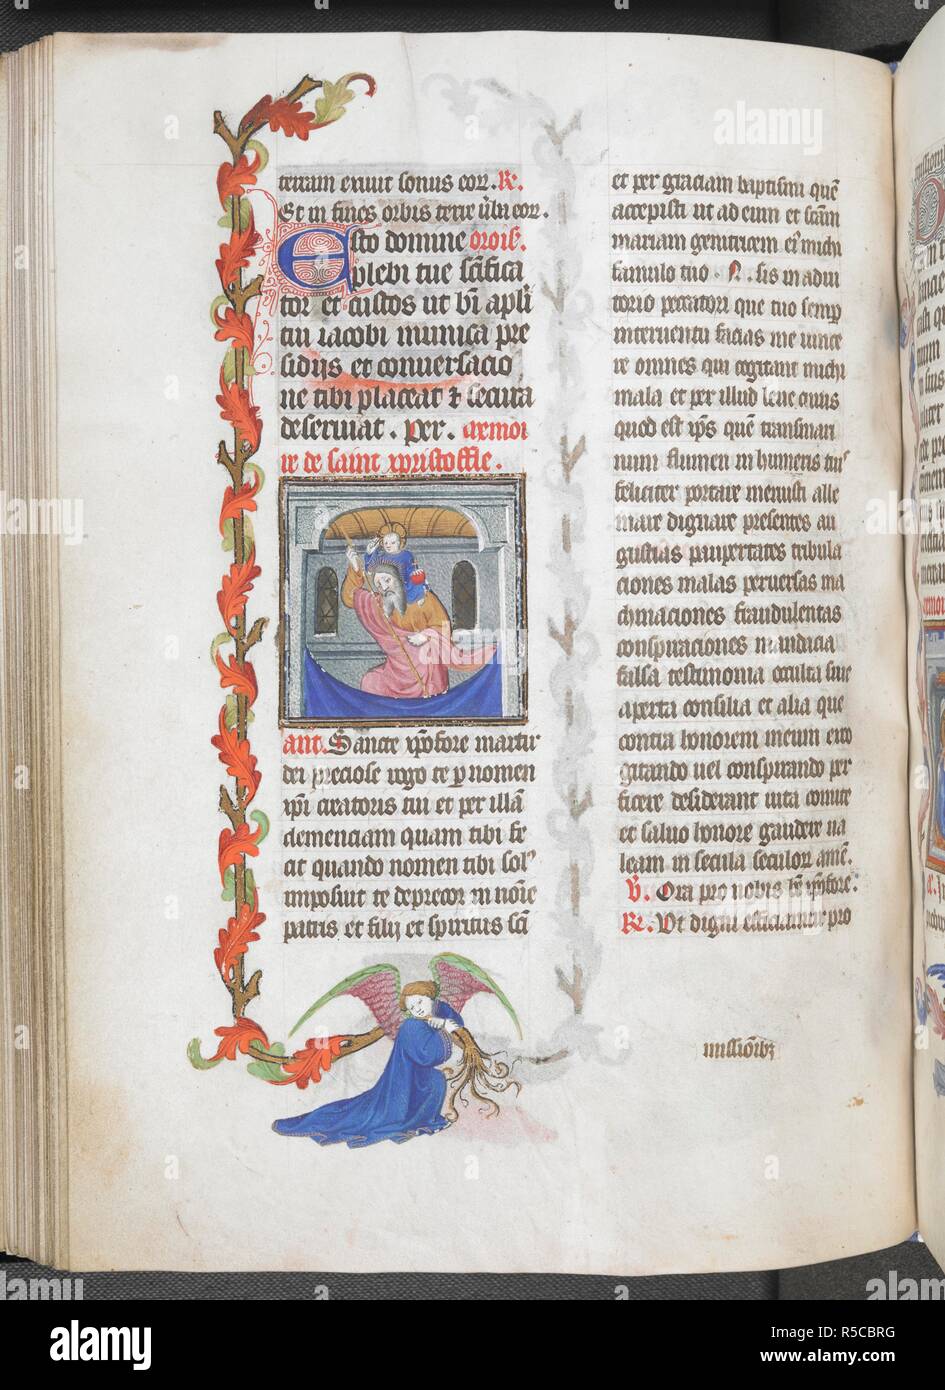 terram exiuit sonus eor. R.
Et in fines orbis terre v̄ba eor.
Esto domine orois̄.
plebi tue sc̄ifica
tor et custos ut bī apl̄i
tui iacobi munita pre
sidijs et conuersacio
ne tibi placeat & secura
deseruiat. Per. a memoi
re de saint xpristoffle.
ant. Sancte xp̄ofore martir
dei preciose rogo te p nomen
xp̄i creatoris tui et per illā
clemenciam quam tibi fe
cit quando nomen tibi sol'
imposuit te deprecor in nōie
patris et filij et spiritus sc̄i
et per graciam baptismi quē
accepisti ut ad eum et sc̄am
mariam genitricem ei' michi
famulo tuo . N. sis in adiu
torio peccatori que tuo semp
interuentu facias me vince
re omnes qui cogitant michi
mala et per illud leue onus
quod est xp̄s quē transmari
num flumen in humeris tuis
feliciter portare meruisti alle
uiare dignare presentes an
gustias paupertates tribula
ciones malas peruersas ma
chinaciones fraudulentas
conspiraciones mendacia
falsa testimonia occulta siue
aperta consilia et alia que
contra honorem meum exco
gitando uel conspirando per
ficere desiderant vita comite
et saluo honore gaudere ua
leam in secula seculor amē.
v̄. Ora pro nobis bē xp̄ofore.
R. Vt digni efficiamur pro
missiōib3
alamy
alamy
Image ID: R5CBRG
www.alamy.com